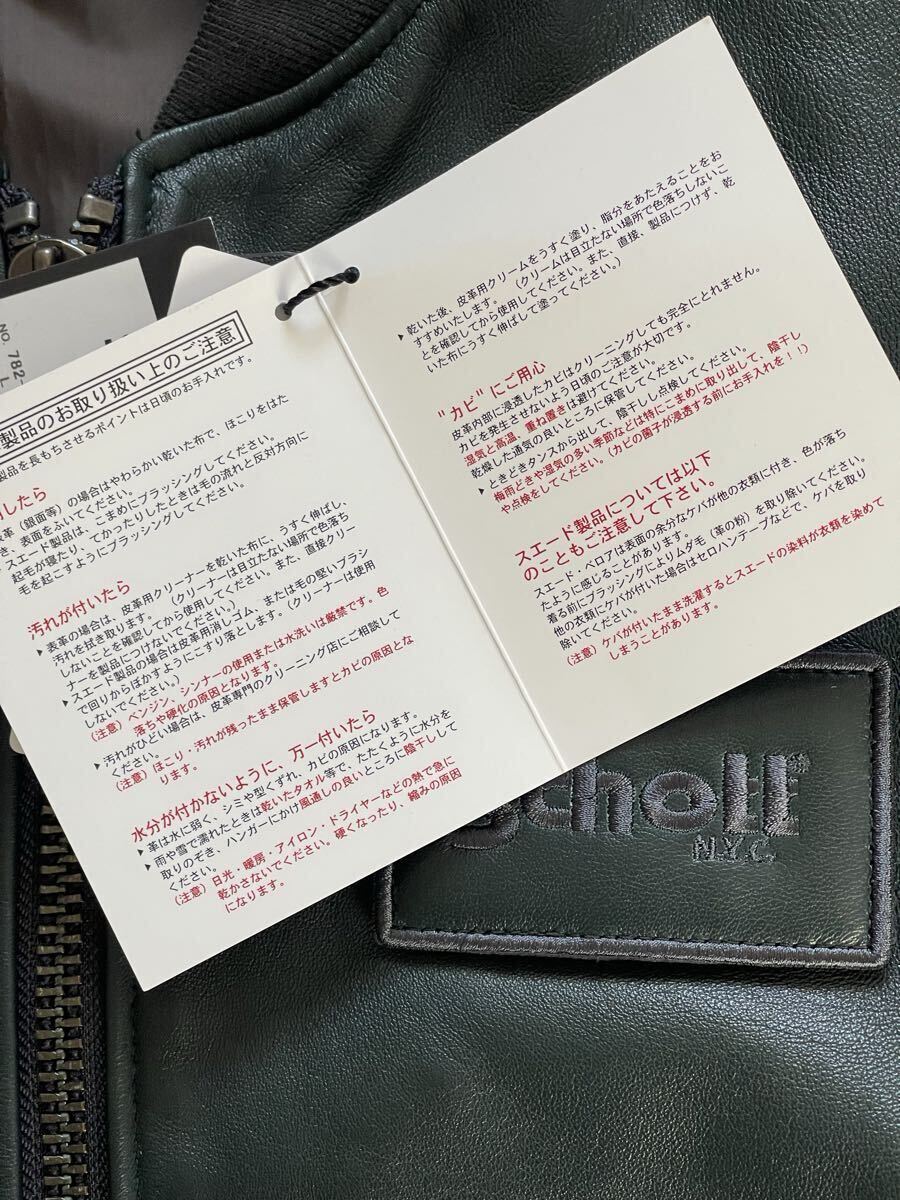 NO. 782-
L
製品のお取り扱い上のご注意
製品を長もちさせるポイントは日頃のお手入れです。
したら
革（銀面等）の場合はやわらかい乾いた布で、ほこりをはた
き、表面をふいてください。
スエード製品は、こまめにブラッシングしてください。
起毛が寝たり、てかったりしたときは毛の流れと反対方向に
毛を起こすようにブラッシングしてください。
汚れが付いたら
▶ 表革の場合は、皮革用クリーナーを乾いた布に、うすく伸ばし、
汚れを拭き取ります。（クリーナーは目立たない場所で色落ち
しないことを確認してから使用してください。また、直接クリー
ナーを製品につけないでください。）
▶ スエード製品の場合は皮革用消しゴム、または毛の堅いブラシ
で回りからぼかすようにこすり落とします。（クリーナーは使用
しないでください。）
（注意）ベンジン、シンナーの使用または水洗いは厳禁です。色
落ちや硬化の原因となります。
▶ 汚れがひどい場合は、皮革専門のクリーニング店にご相談して
ください。
（注意）ほこり・汚れが残ったまま保管しますとカビの原因とな
ります。
水分が付かないように、万一付いたら
▶ 革は水に弱く、シミや型くずれ、カビの原因になります。
▶ 雨や雪で濡れたときは乾いたタオル等で、たたくように水分を
取りのぞき、ハンガーにかけ風通しの良いところに陰干しして
ください。
（注意）日光・暖房・アイロン・ドライヤーなどの熱で急に
乾かさないでください。硬くなったり、縮みの原因
になります。
▶ 乾いた後、皮革用クリームをうすく塗り、脂分をあたえることをお
すすめいたします。（クリームは目立たない場所で色落ちしないこ
とを確認してから使用してください。また、直接、製品につけず、乾
いた布にうすく伸ばして塗ってください。）
"カビ"にご用心
皮革内部に浸透したカビはクリーニングしても完全にとれません。
カビを発生させないよう日頃のご注意が大切です。
湿気と高温、重ね置きは避けてください。
乾燥した通気の良いところに保管してください。
▶ ときどきタンスから出して、陰干しし点検してください。
梅雨どきや湿気の多い季節などは特にこまめに取り出して、陰干し
や点検をしてください。（カビの菌子が浸透する前にお手入れを！！）
スエード製品については以下
のこともご注意して下さい。
スエード・ベロアは表面の余分なケバが他の衣類に付き、色が落ち
たように感じることがあります。
着る前にブラッシングによりムダ毛（革の粉）を取り除いてください。
他の衣類にケバが付いた場合はセロハンテープなどで、ケバを取り
除いてください。
（注意）ケバが付いたまま洗濯するとスエードの染料が衣類を染めて
しまうことがあります。
schott
N.Y.C.